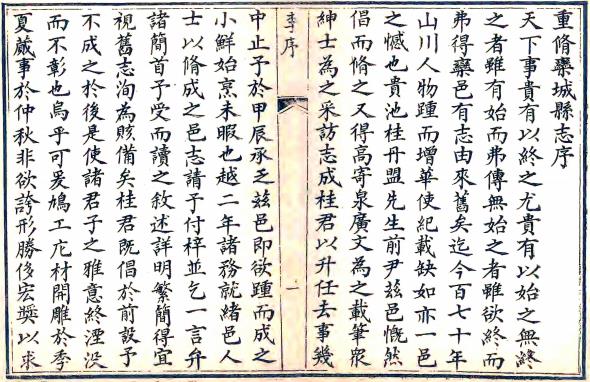 重脩欒城縣志序
天下事貴有以終之尤貴有以始之無終
之者雖有始而弗傳無始之者雖欲終而
弗得欒邑有志由來舊矣迄今百七十年
山川人物踵而增華使紀載缺如亦一邑
之憾也貴池桂丹盟先生前尹茲邑慨然
倡而脩之又得高寄泉廣文為之載筆眾
紳士為之采訪志成桂君以升任去事幾
李序
一
中止予於甲辰承乏茲邑即欲踵而成之
小鮮始烹未暇也越二年諸務就緒邑人
士以脩成之邑志請予付梓並乞一言弁
諸簡首予受而讀之敘述詳明繁簡得宜
視舊志洵為賅備矣桂君既倡於前設予
不成之於後是使諸君子之雅意終湮没
而不彰也烏乎可爰鳩工庀材開雕於季
夏蕆事於仲秋非欲誇形勝侈宏奬以來